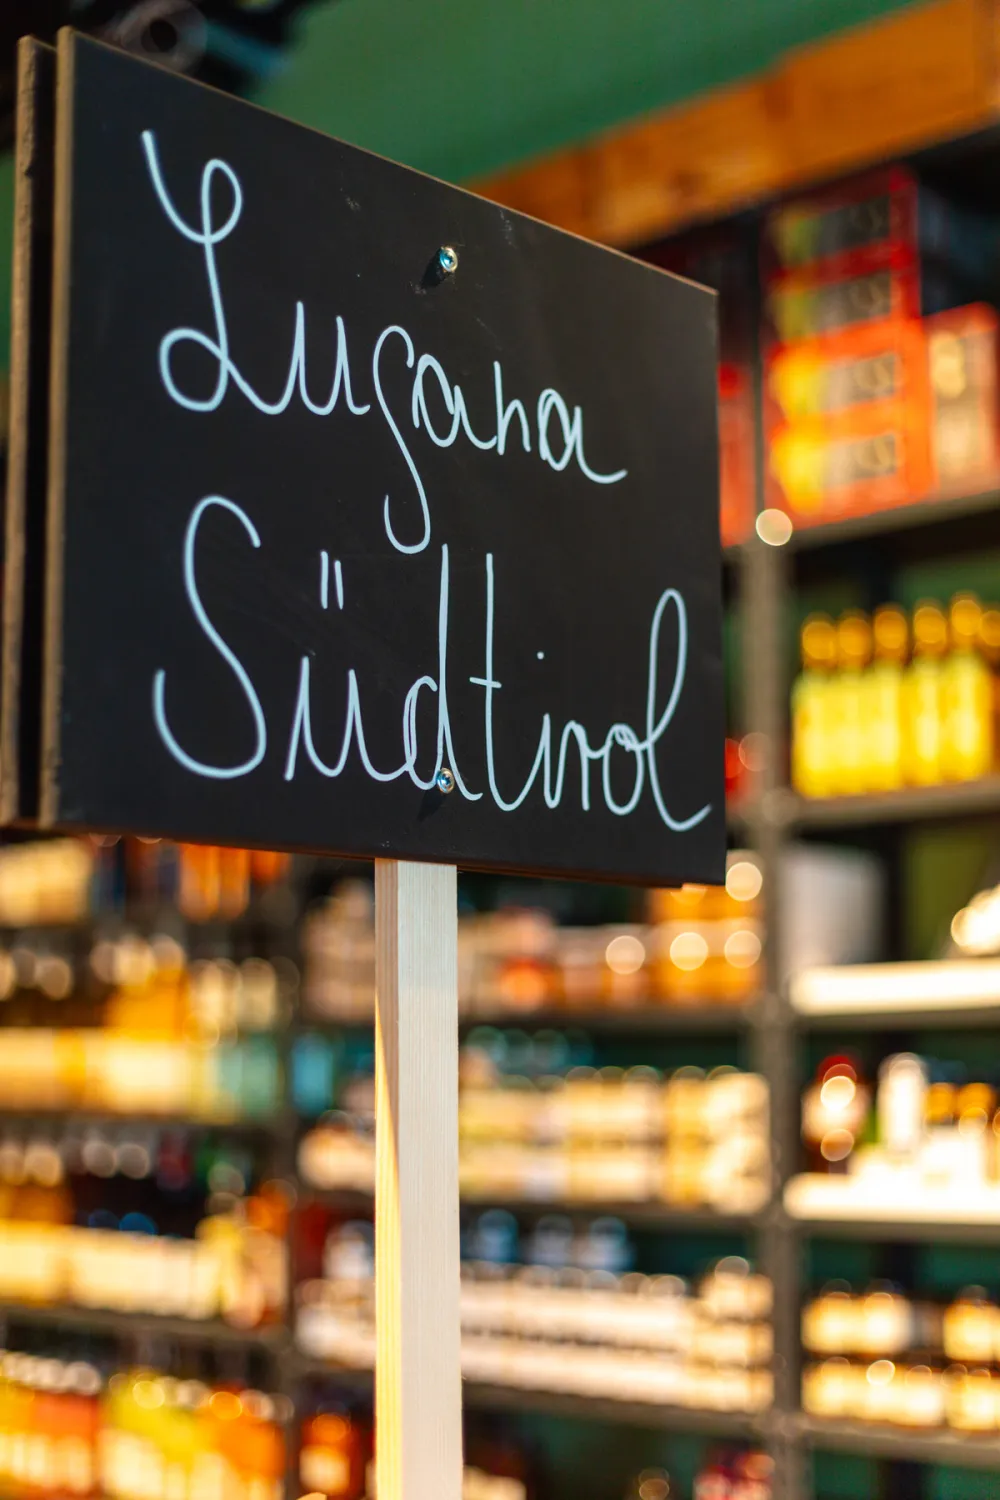 Lugana
Südtirol